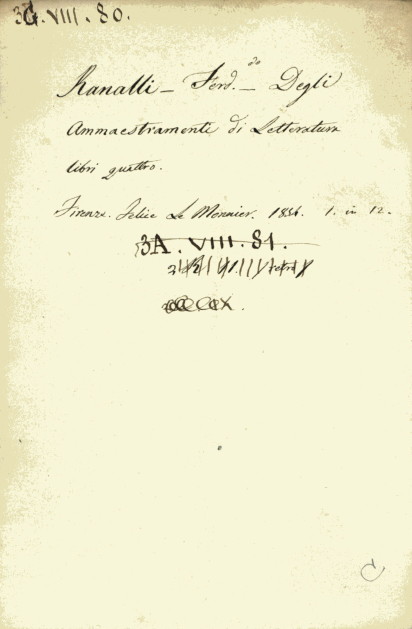 3G. VIII. 80.
Ranalli – Ferd.do – Degli
Ammaestramenti di Letteratura
libri quattro.
Firenze. Felice Le Monnier. 1854. 1. in 12.
3A. VIII. 81.
C